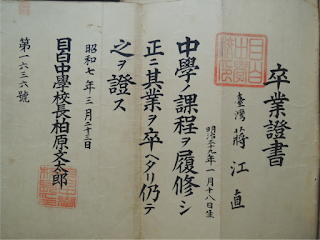 卒業證書
臺灣 蔣江直
明治卅九年一月十八日生
中學ノ課程ヲ履修シ
正ニ其業ヲ卒ヘタリ仍テ
之ヲ證ス
昭和七年三月二十三日
目白中學校長柏原文太郎
第一六三六號